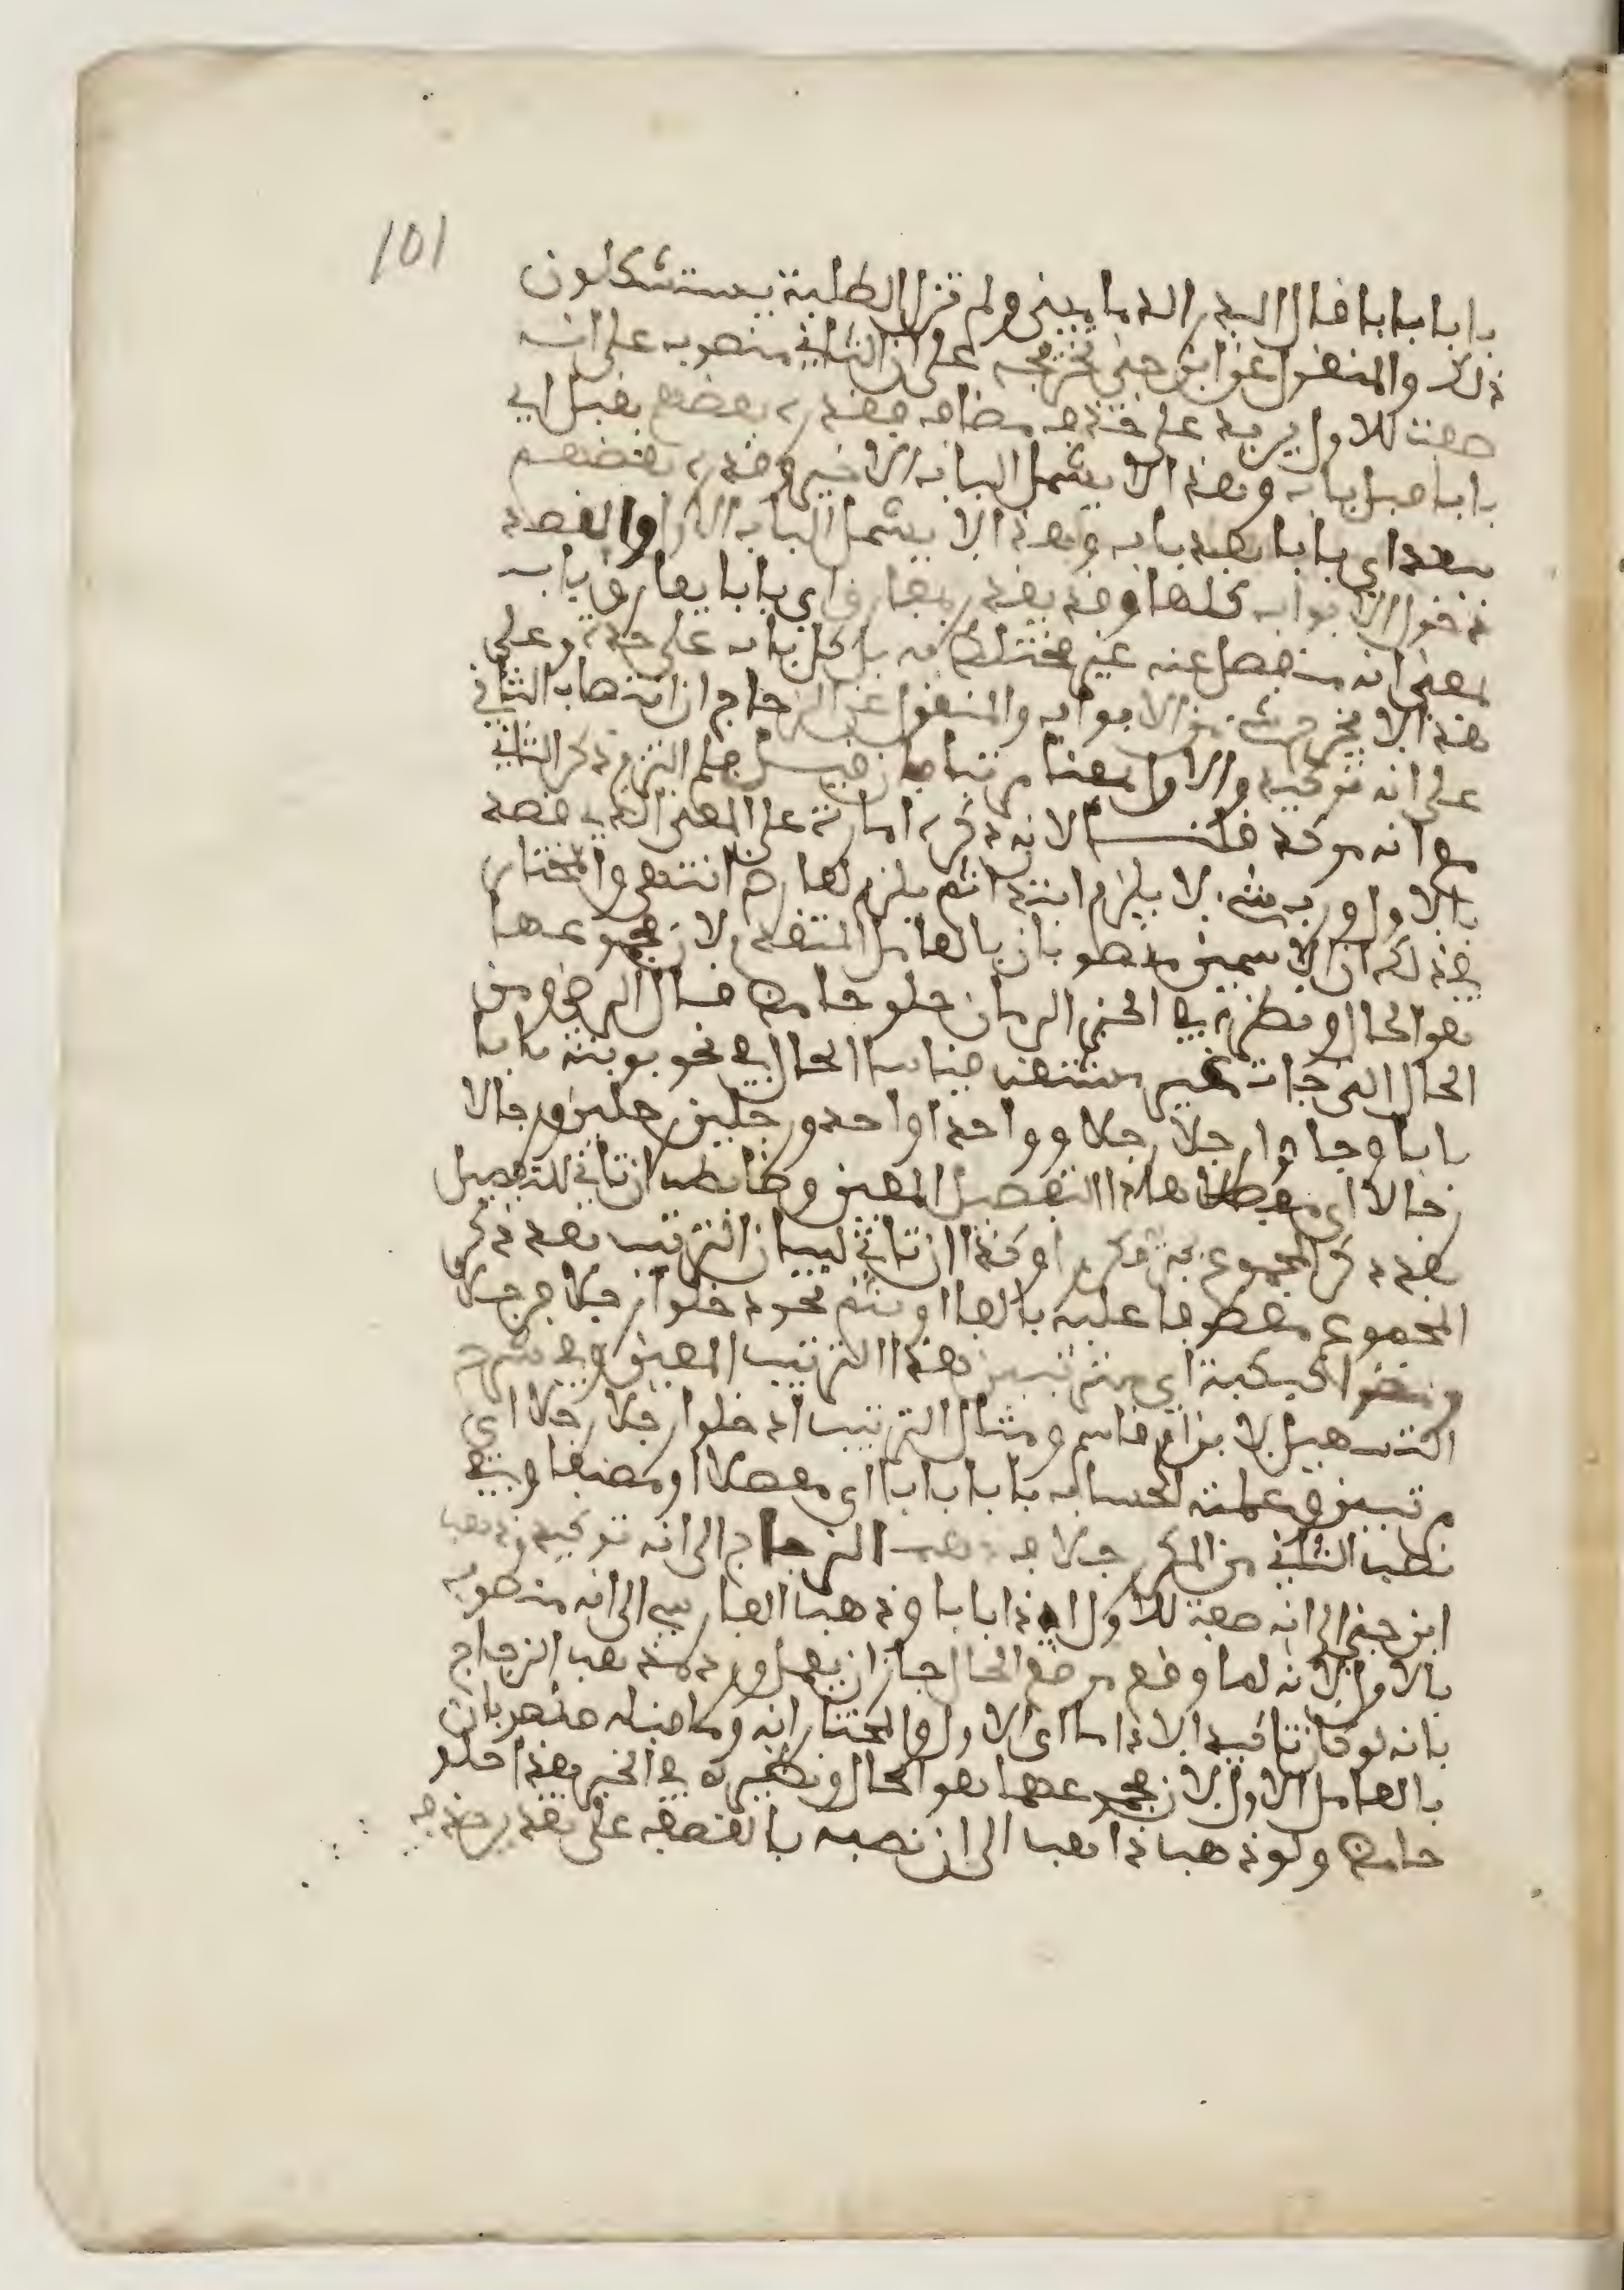 101
بابا بابا قال البدر الدماميني ولم تزل الطلبة يستشكلون
ذلك والمنقول عن ابن جني تخريجه على ان الثاني منصوب على انه
صفة للاول يريد على حذف مضاف فقدره بعضهم بقبل اي
بابا قبل باب وهذا لا يشمل الباب الاخير وقدره بعضهم
ببعد اي بابا بعد باب وهذا لا يشمل الباب الاول والقصد
دخول الابواب كلها وقد يقدر بمفارق اي بابا يفارق باب
بمعنى انه منفصل عنه غير مختلط به بل كل باب على حدة وعلى
هذا لا يخرج شيء من الابواب والمنقول عن الزجاج ان انتصاب الثاني
على انه توكيد والاول بمعنى مرتبا فان قيل فلم التزم ذكر الثاني
مع انه موكد قلت لانه ذكره امارة على المعنى الذي قصد
بالاول ورب شيء لا يلزم ابتداء ثم يلزم لعارض انتهى والمختار
بعد ذلك ان الاسمين منصوبان بالعامل المتقدم لان مجموعهما
هو الحال ونظيره في الخبر الرمان حلو حامض قال الرضي ومن
الحال التي جاءت غير مشتقة قياسا الحال في نحو بوبته بابا
بابا وجاءوا رجلا رجلا وواحدا واحدا ورجلين رجلين ورجالا
رجالا اي مفصلا هذا التفصيل المعين وضابطه ان تاتي للتفصيل
بعد ذكر المجموع بجزئه مكررا وكذا ان تاتي لبيان الترتيب بعد ذكر
المجموع معطوفا عليه بالفاء او بثم نحو دخلوا رجلا فرجلا
ومضوا كبكبة اي ثم تبين هذا الترتيب المعين وفي شرح
التسهيل لابن ام قاسم ومثال الترتيب ادخلوا رجلا رجلا اي
مرتبين وعلمته الحساب بابا بابا اي مفصلا او مصنفا وفي
نصب الثاني من المكرر خلاف ذهب الزجاج الى انه توكيد وذهب
ابن جني الى انه صفة للاول اي ذا باب وذهب الفارسي الى انه منصوب
بالاول لانه لما وقع موقع الحال جاز ان يعمل ورد مذهب الزجاج
بانه لو كان تاكيدا لادى ما ادى الاول والمختار انه وما قبله منصوبان
بالعامل الاول لان مجموعهما هو الحال ونظيره في الخبر هذا حلو
حامض ولو ذهب ذاهب الى ان نصبه بالعطف على تقدير حذف